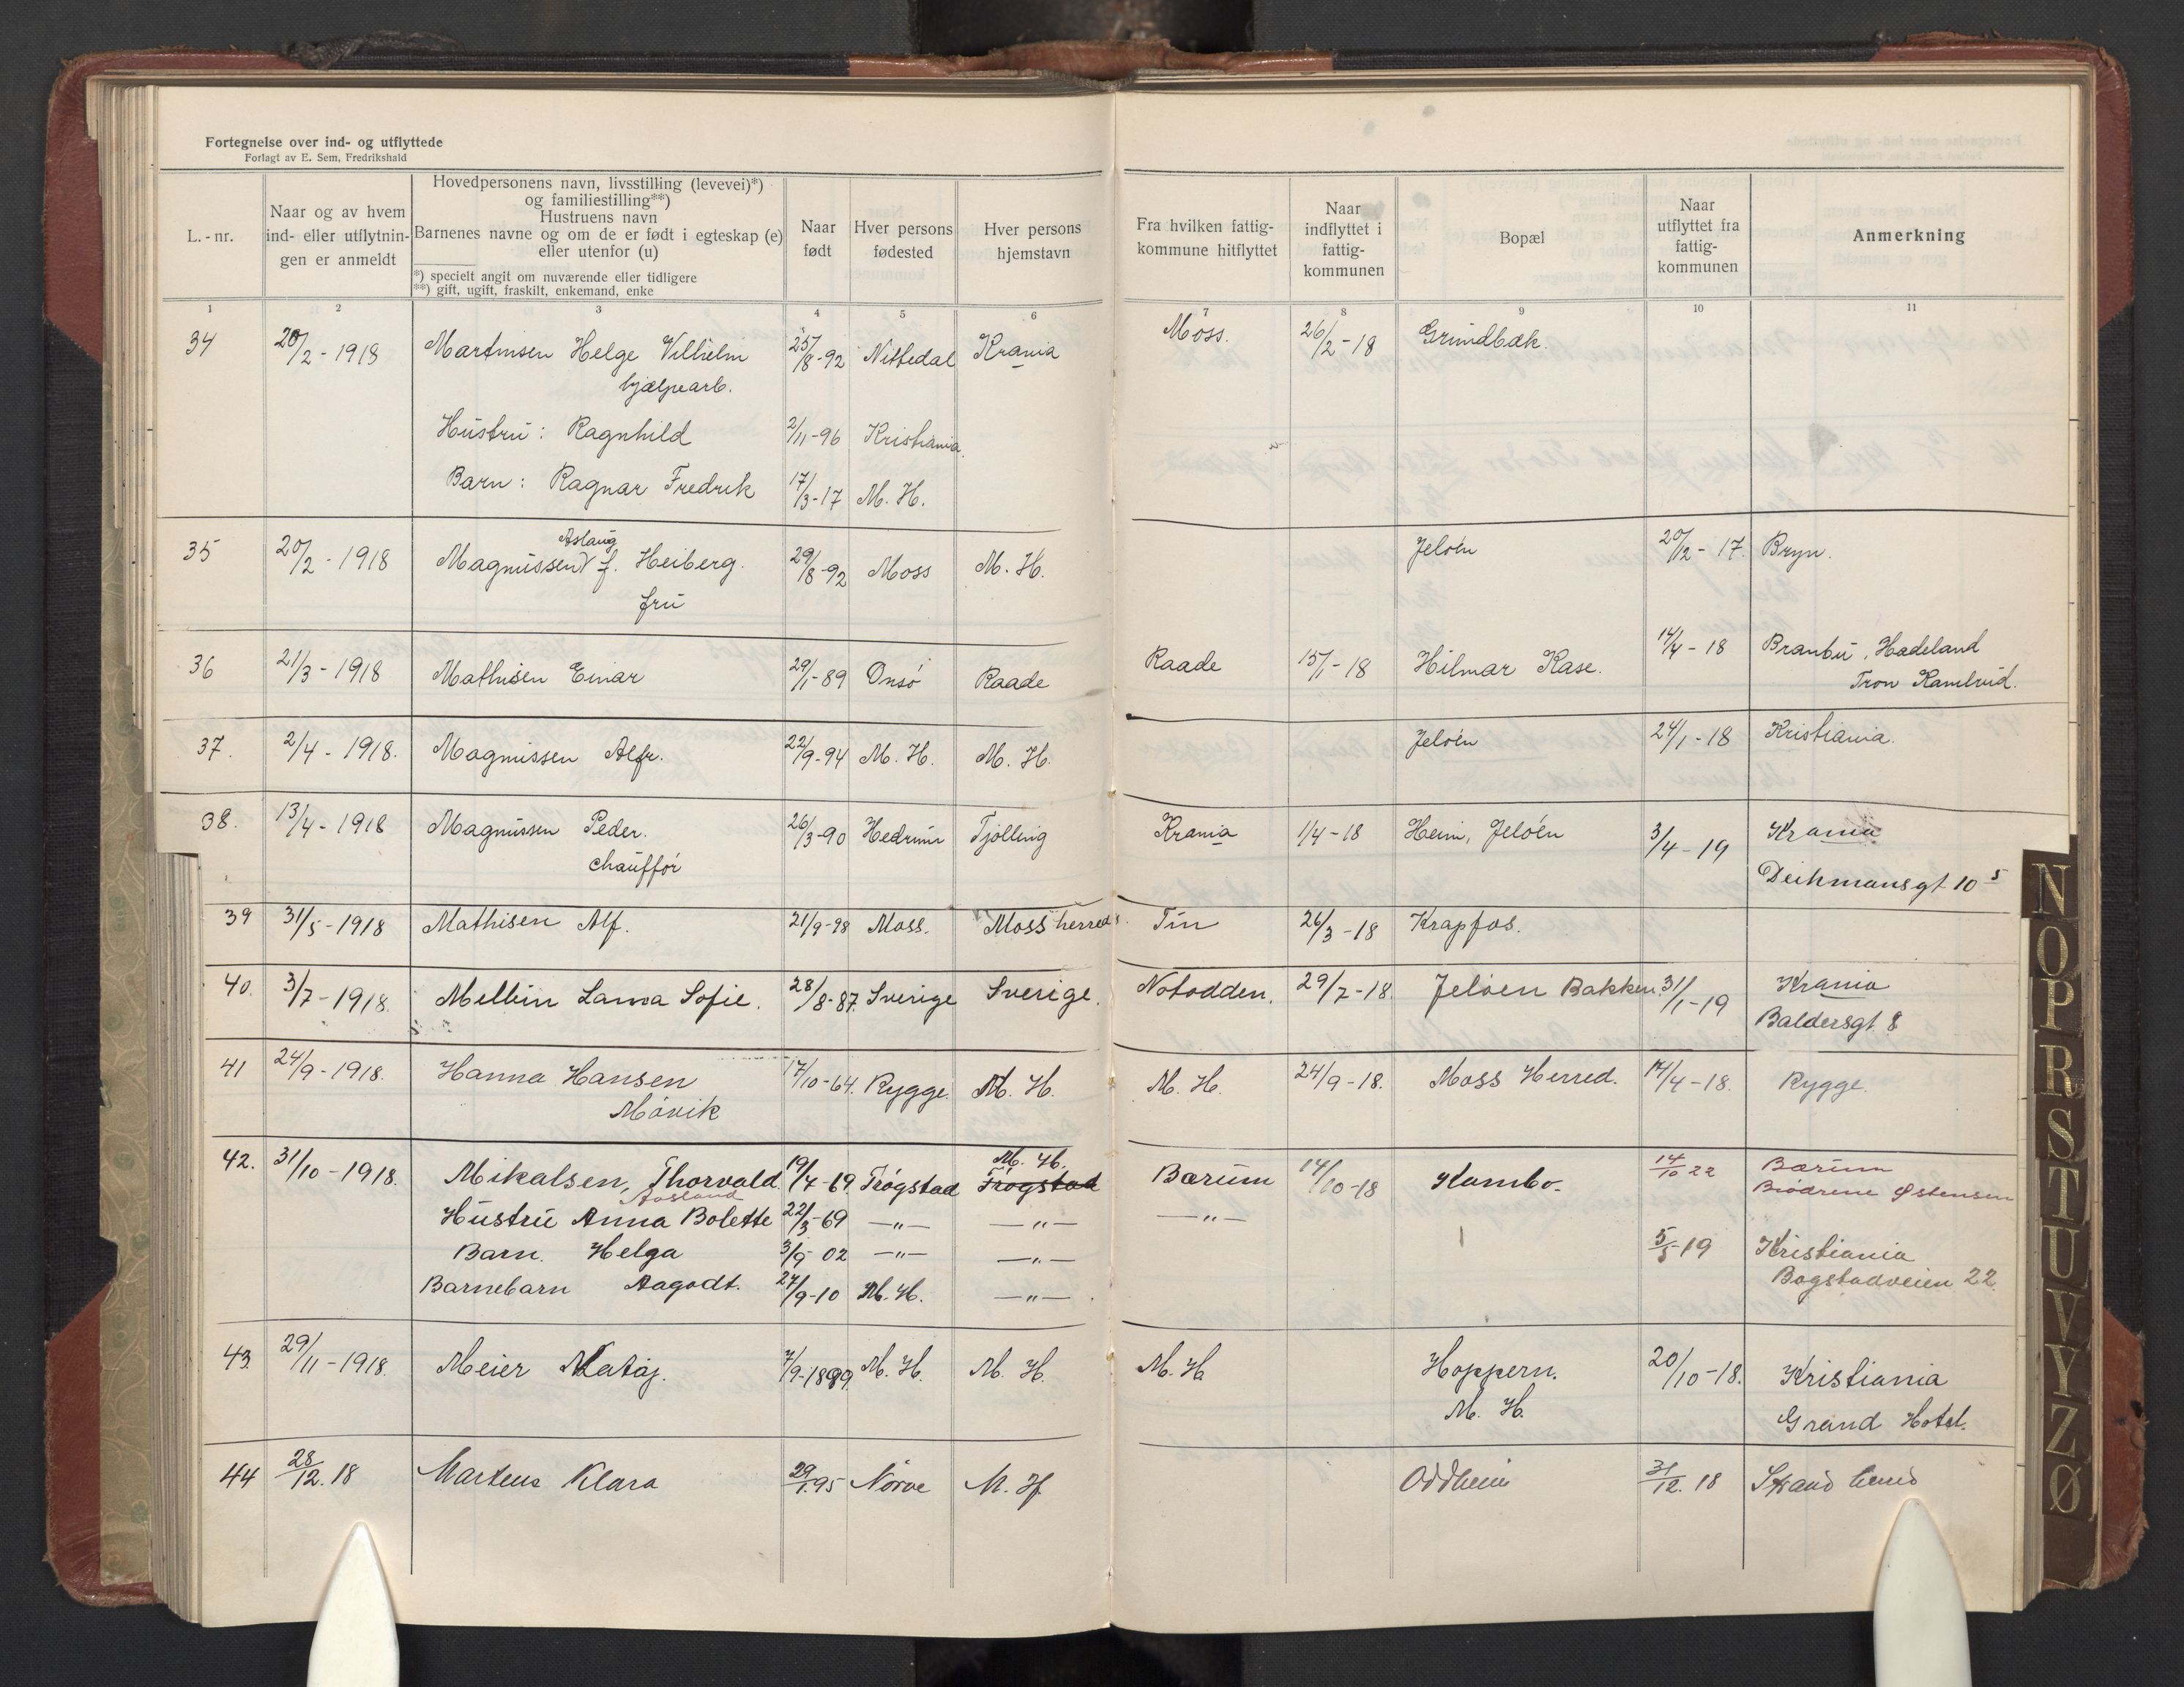 Fortegnelse over ind- og utflyttede
Forlagt av E. Sem, Fredrikshald
L.-nr.
Naar og av hvem ind- eller utflytningen er anmeldt
Hovedpersonens navn, livsstilling (levevei)*)
og familiestilling**)
Hustruens navn
Barnenes navne og om de er født i egteskap (e)
eller utenfor (u)
*) specielt angit om nuværende eller tidligere
**) gift, ugift, fraskilt, enkemand, enke
Naar født
Hver persons fødested
Hver persons hjemstavn
Fra hvilken fattigkommune hitflyttet
Naar indflyttet i fattigkommunen
Bopæl
Naar utflyttet fra fattigkommunen
Anmerkning
1 2 3 4 5 6 7 8 9 10 11
34 20/2 - 1918 Martinsen Helge Vilhelm 25/8-92 Nittedal Krania Moss. 26/2-18 Grundbæk.
hjælpearb.
Hustru: Ragnhild 2/11-96 Kristiania.
Barn: Ragnar Fredrik 17/3-17 M. H.
Aslaug
35 20/2 - 1918 Magnussen f. Heiberg. 29/8-92 Moss M. H. Jeløen 20/12-17. Bryn.
fru
36 21/3 - 1918 Mathisen Einar 29/1-89 Onsø Raade Raade 15/1-18 Hilmar Kase. 14/4-18 Branbu, Hadeland
Tron Kamlrud.
37. 2/4 - 1918. Magnussen Alfr. 22/9-94 M. H. M. H. Jeløen 24/1-18 Kristiania.
38. 13/4 - 1918 Magnussen Peder. 26/3-90 Hedrum Tjølling Krania 1/4-18 Heim, Jeløen 3/4-19 Krania
chauffør Deihmansgt 10 5
39 31/5-1918 Mathisen Alf. 21/9-98 Moss. Moss herred Tin 26/3-18 Krapfos.
40. 3/7-1918. Mellin Sofie. 28/8-87. Sverige Sverige. Notodden. 29/7-18. Jeløen Bakken. 31/1-19 Krania
Baldersgt. 8
41 24/9-1918. Hanna Hansen 17/10-64. Rygge. M. H. M. H. 24/9-18. Moss Herred. 14/4-18. Rygge.
Møvik
M. H.
42. 31/10-1918. Mikalsen, Thorvald 19/4-69 Trøgstad Trøgstad Bærum 14/10-18 Kambo. 14/10 22 Bærum
Brødrene Østensen
Hustru Anna Bolette 22/3-69 —"— —"— —"—
Barn. Helga 3/9-02 —"— —"— 5/5-19 Kristiania
Barnebarn Aagodt. 27/9-10 M. H. —"— Bogstadveien 22.
43. 29/11-1918. Meier 7/9-1889. M. H. M. H. M. H. Hoppern. 20/10-18. Kristiania
M. H. Grand Hotel.
44 28/12.18 Martens Klara 29/1.95 M. H. Oddheim 31/12.18 Strand
N
O
P
R
S
T
U
V
Y
Z
Ø